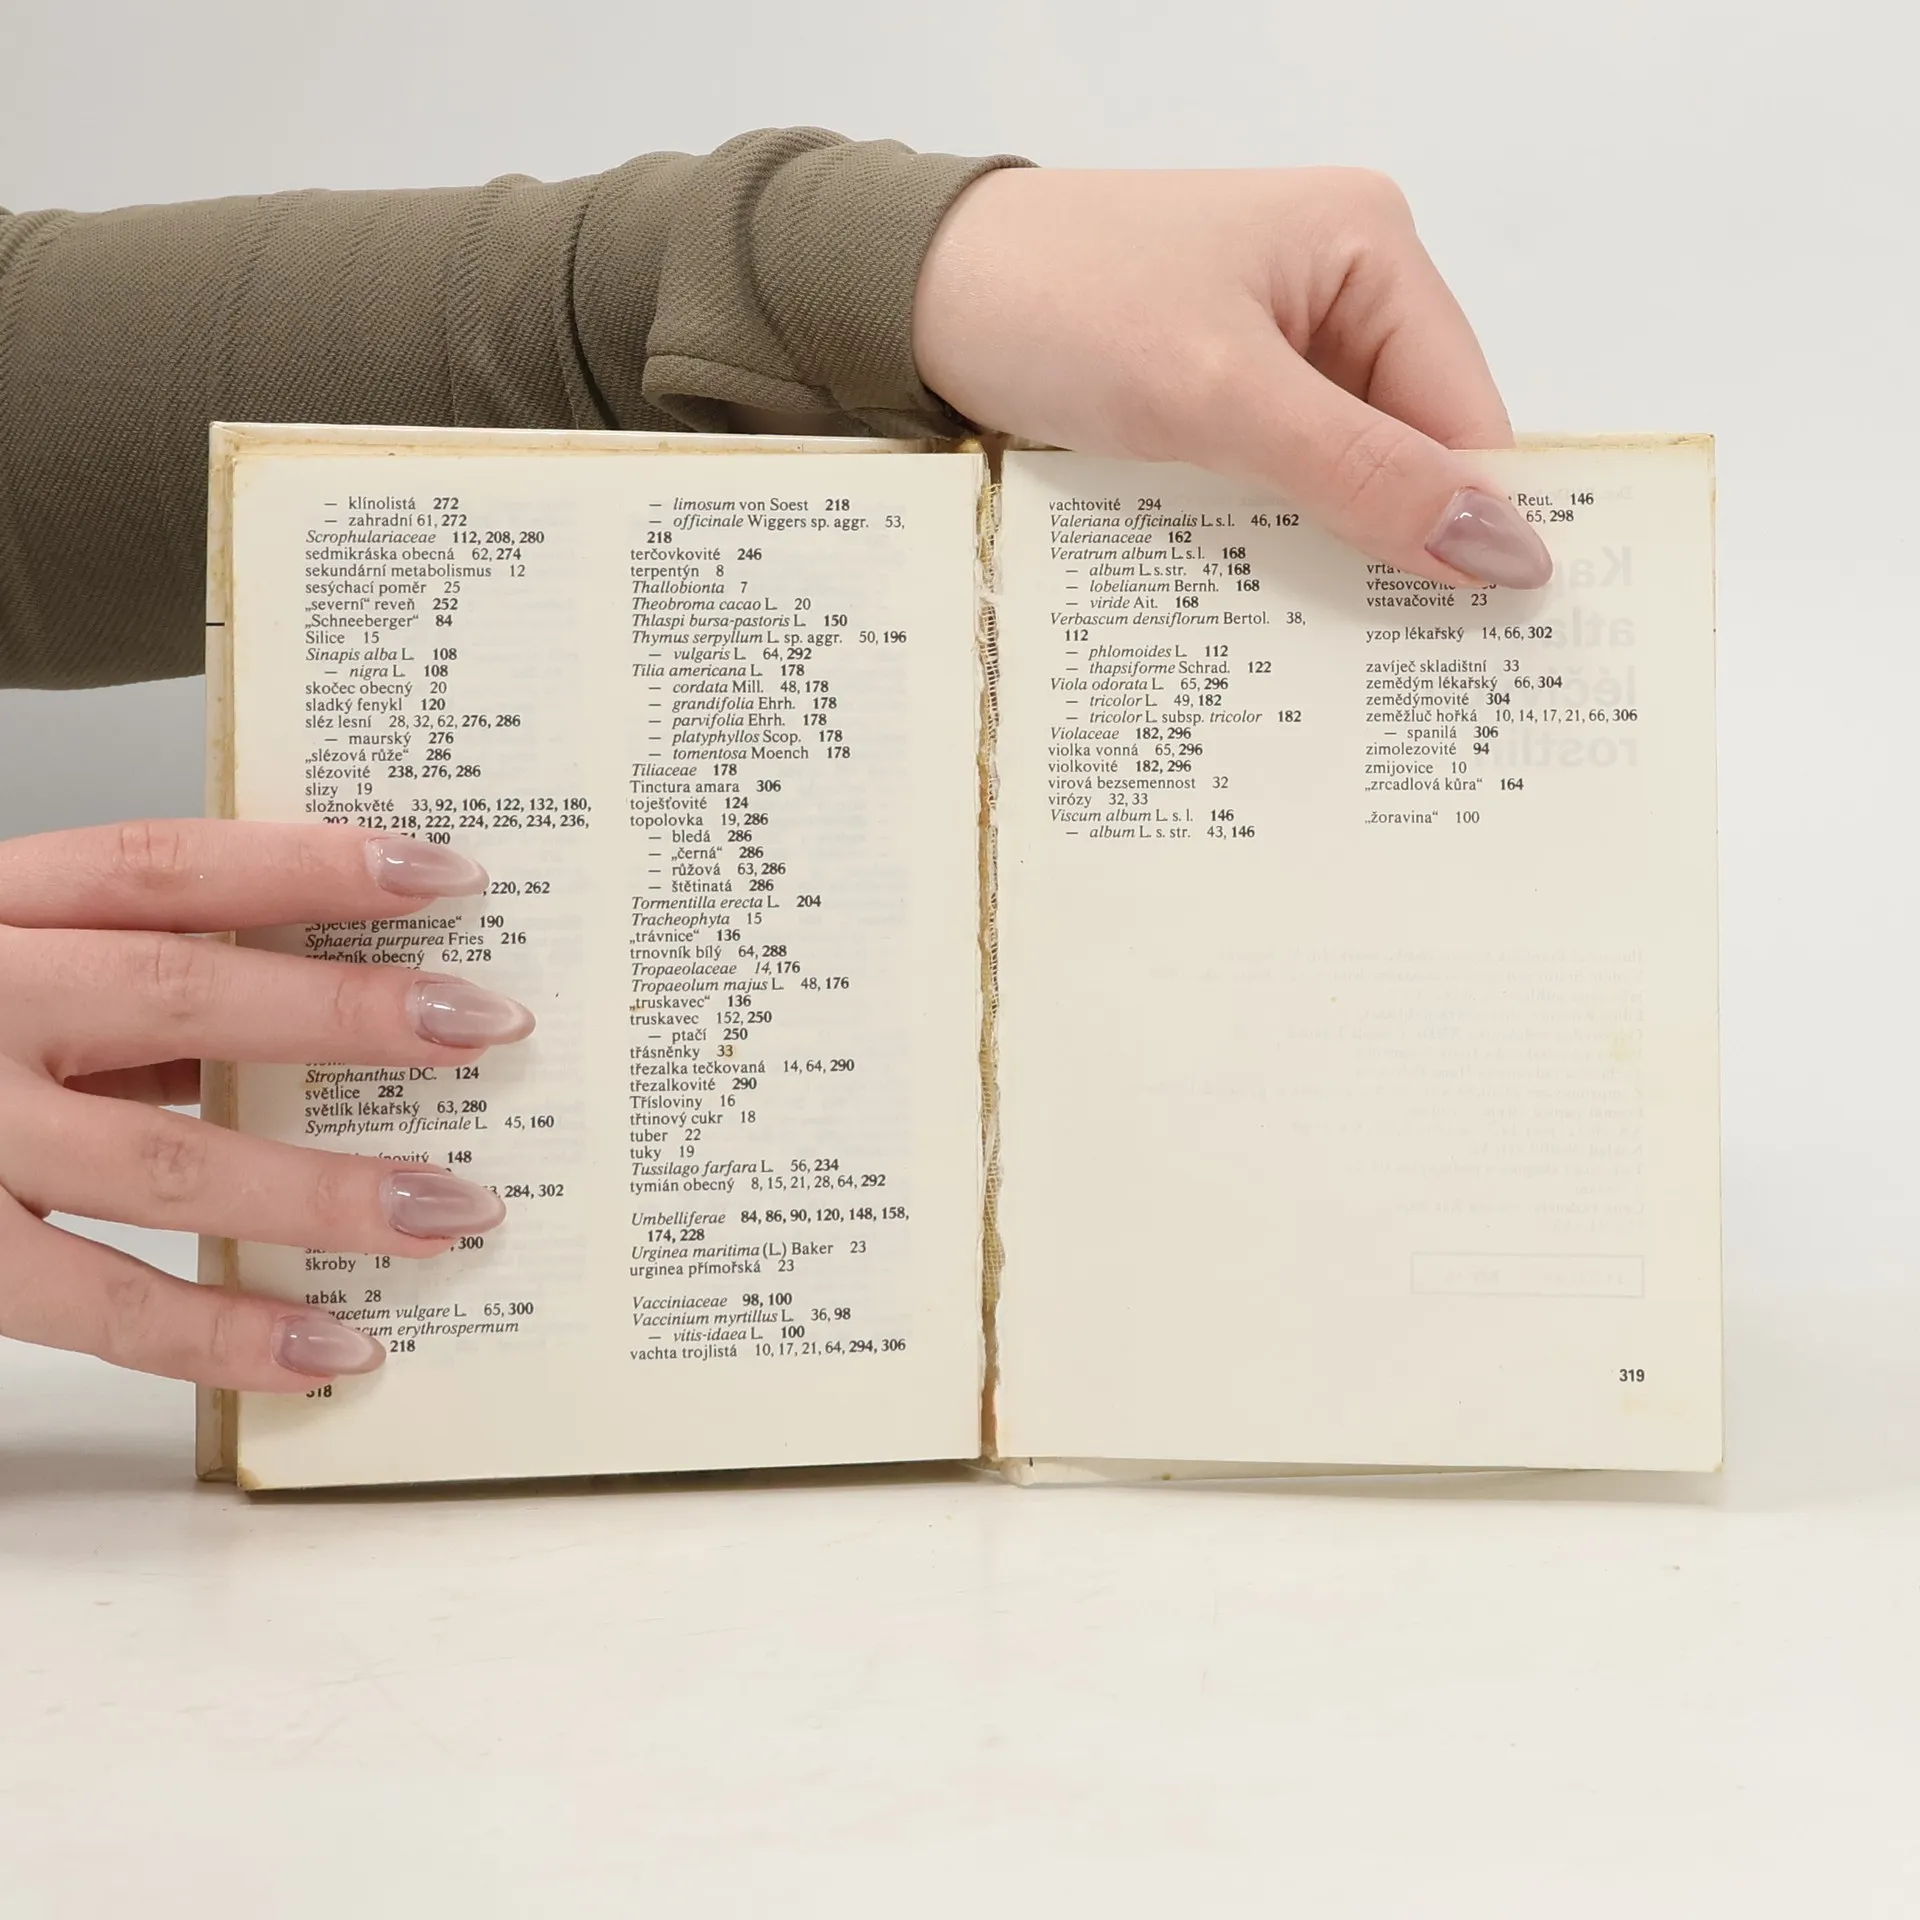 — klínolistá 272
— zahradní 61, 272
Scrophulariaceae 112, 208, 280
sedmikráska obecná 62, 274
sekundární metabolismus 12
sesýchací poměr 25
„severní“ reveň 252
„Schneeberger“ 84
Silice 15
Sinapis alba L. 108
— nigra L. 108
skočec obecný 20
sladký fenykl 120
sléz lesní 28, 32, 62, 276, 286
— maurský 276
„slézová růže“ 286
slézovité 238, 276, 286
slizy 19
složnokvěté 33, 92, 106, 122, 132, 180,
202, 212, 218, 222, 224, 226, 234, 236,
300
, 220, 262
„Species germanicae“ 190
Sphaeria purpurea Fries 216
srdečník obecný 62, 278
Strophanthus DC. 124
světlice 282
světlík lékařský 63, 280
Symphytum officinale L. 45, 160
148
284, 302
, 300
škroby 18
tabák 28
vulgare L. 65, 300
erythrospermum
218
318
— limosum von Soest 218
— officinale Wiggers sp. aggr. 53,
218
terčovkovité 246
terpentýn 8
Thallobionta 7
Theobroma cacao L. 20
Thlaspi bursa-pastoris L. 150
Thymus serpyllum L. sp. aggr. 50, 196
— vulgaris L. 64, 292
Tilia americana L. 178
— cordata Mill. 48, 178
— grandifolia Ehrh. 178
— parvifolia Ehrh. 178
— platyphyllos Scop. 178
— tomentosa Moench 178
Tiliaceae 178
Tinctura amara 306
toješťovité 124
topolovka 19, 286
— bledá 286
— „černá“ 286
— růžová 63, 286
— štětinatá 286
Tormentilla erecta L. 204
Tracheophyta 15
„trávnice“ 136
trnovník bílý 64, 288
Tropaeolaceae 14, 176
Tropaeolum majus L. 48, 176
„truskavec“ 136
truskavec 152, 250
— ptačí 250
třásněnky 33
třezalka tečkovaná 14, 64, 290
třezalkovité 290
Třísloviny 16
třtinový cukr 18
tuber 22
tuky 19
Tussilago farfara L. 56, 234
tymián obecný 8, 15, 21, 28, 64, 292
Umbelliferae 84, 86, 90, 120, 148, 158,
174, 228
Urginea maritima (L.) Baker 23
urginea přímořská 23
Vacciniaceae 98, 100
Vaccinium myrtillus L. 36, 98
— vitis-idaea L. 100
vachta trojlistá 10, 17, 21, 64, 294, 306
vachtovité 294
Valeriana officinalis L. s. l. 46, 162
Valerianaceae 162
Veratrum album L. s. l. 168
— album L. s. str. 47, 168
— lobelianum Bernh. 168
— viride Ait. 168
Verbascum densiflorum Bertol. 38,
112
— phlomoides L. 112
— thapsiforme Schrad. 122
Viola odorata L. 65, 296
— tricolor L. 49, 182
— tricolor L. subsp. tricolor 182
Violaceae 182, 296
violka vonná 65, 296
violkovité 182, 296
virová bezsemennost 32
virózy 32, 33
Viscum album L. s. l. 146
— album L. s. str. 43, 146
Reut. 146
65, 298
vřesovcovité
vstavačovité 23
yzop lékařský 14, 66, 302
zavíječ skladištní 33
zemědým lékařský 66, 304
zemědýmovité 304
zeměžluč hořká 10, 14, 17, 21, 66, 306
— spanilá 306
zimolezovité 94
zmijovice 10
„zrcadlová kůra“ 164
„žoravina“ 100
319